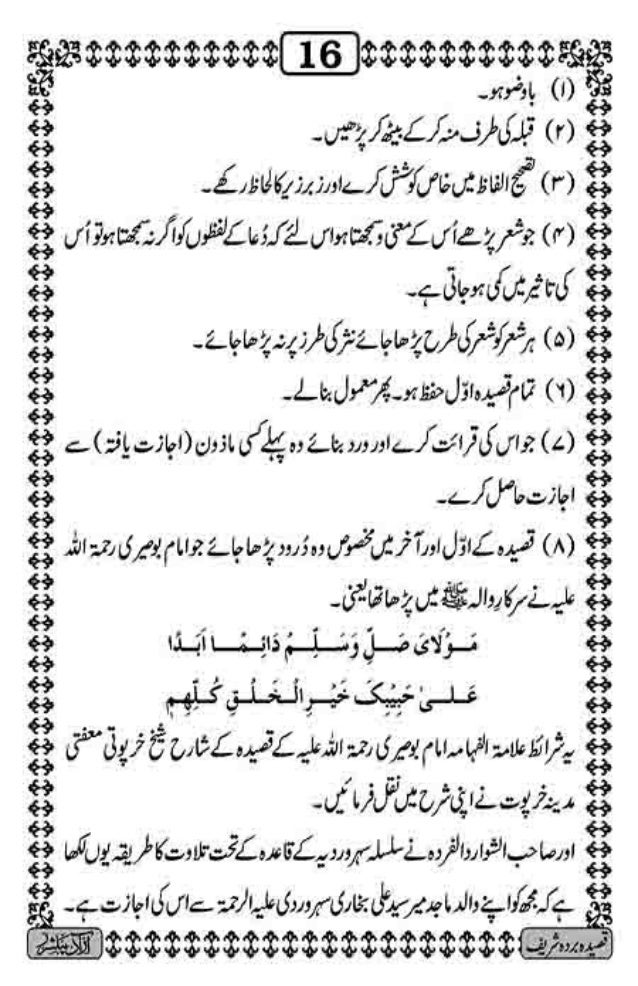 16
(۱) باوضو ہو۔
(۲) قبلہ کی طرف منہ کر کے بیٹھ کر پڑھیں۔
(۳) تصحیح الفاظ میں خاص کوشش کرے اور زبر زیر کا لحاظ رکھے۔
(۴) جو شعر پڑھے اُس کے معنی و سمجھتا ہو اس لئے کہ دُعا کے لفظوں کو اگر نہ سمجھتا ہو تو اُس
کی تاثیر میں کمی ہو جاتی ہے۔
(۵) ہر شعر کو شعر کی طرح پڑھا جائے نثر کی طرز پر نہ پڑھا جائے۔
(۶) تمام قصیدہ اوّل حفظ ہو۔ پھر معمول بنا لے۔
(۷) جو اس کی قرائت کرے اور ورد بنائے وہ پہلے کسی ماذون (اجازت یافتہ) سے
اجازت حاصل کرے۔
(۸) قصیدہ کے اوّل اور آخر میں مخصوص وہ دُرود پڑھا جائے جو امام بوصیری رحمۃ اللہ
علیہ نے سرکارِ والہ ﷺ میں پڑھا تھا یعنی۔
مَوْلَایَ صَلِّ وَسَلِّمُ دَائِمًا اَبَدًا
عَلٰی حَبِیْبِکَ خَیْرِ الْخَلْقِ کُلِّھِمِ
یہ شرائط علامۃ الفہامہ امام بوصیری رحمۃ اللہ علیہ کے قصیدہ کے شارح شیخ خرپوتی مفتی
مدینہ خرپوت نے اپنی شرح میں نقل فرمائیں۔
اور صاحب الشوارد الفردہ نے سلسلہ سہروردیہ کے قاعدہ کے تحت تلاوت کا طریقہ یوں لکھا
ہے کہ مجھ کو اپنے والد ماجد میر سید علی بخاری سہروردی علیہ الرحمۃ سے اس کی اجازت ہے۔
قصیدہ بردہ شریف